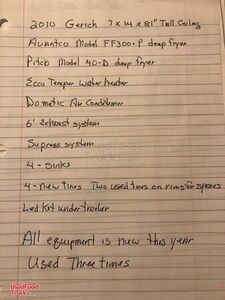 2010 Gerich 7 x 14 x 81" Tall Ceiling
Avantco Model FF300-P deep fryer
Pitco Model 40-D deep fryer
Ecco Temper water heater
Dometic Air Conditioner
6' Exhaust system
Supress system
4 - Sinks
4 - new tires Two used tires on rims for spares
Led Kit under trailer
All equipment is new this year
Used Three times
UsedFood
Trucks
UsedFoodTrucks